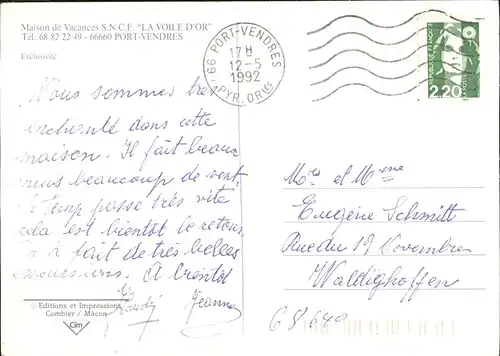 Maison de Vacances S.N.C.F. "LA VOILE D'OR"
Tél. 68 82 22 49 - 66660 PORT-VENDRES
Exclusivité
66 PORT-VENDRES
17 H
12-5
1992
PYR. OR LES
2,20
Nous sommes très
enchanté dans cette
maison. Il fait beau
mais beaucoup de vent.
Le temp passe très vite
cela est bientôt le retour.
On a fait de très belles
excursions. A bientôt
Jeanne
Mr et Mme
Eugène Schmitt
Rue du 19 Novembre
Waldighoffen
68640
© Editions et Impressions
Combier / Mâcon
Cim